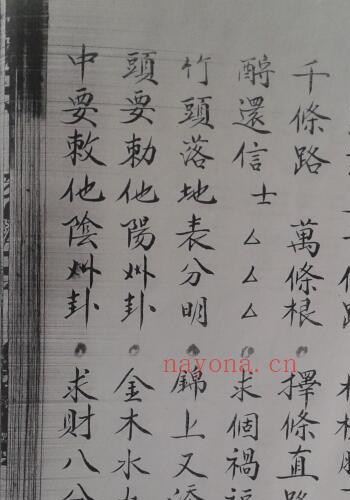 千條路 萬條根 擇條直路
酧還信士 △△△ 求個禍福
竹頭落地表分明 錦上又添
頭要勅他陽州卦 金木水
中要敕他陰州卦 求财八分
nayona.cn